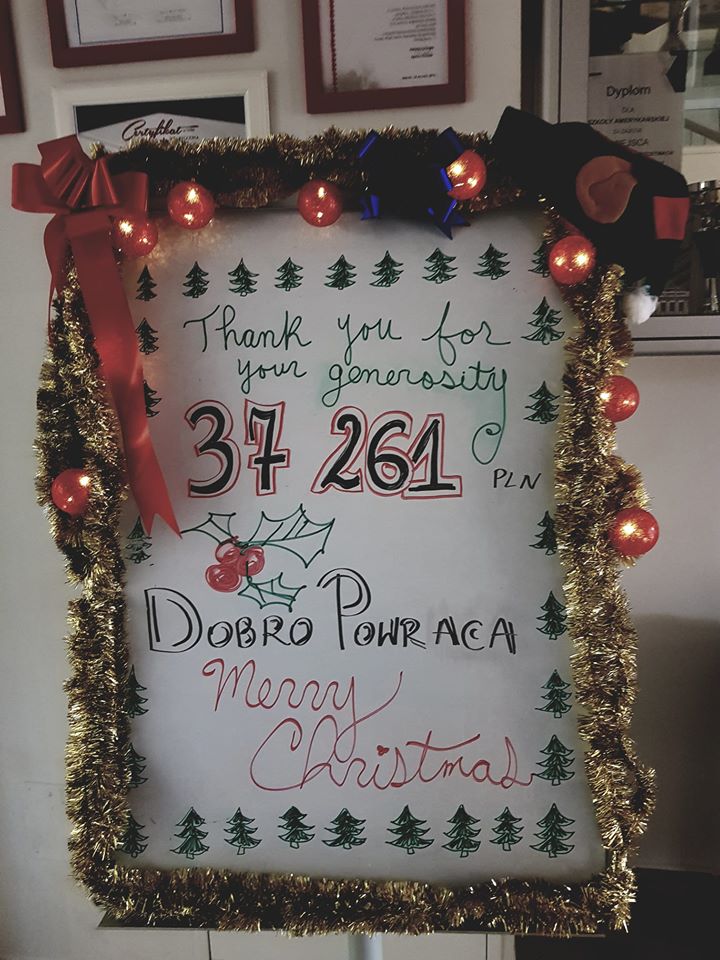 Certyfikat
Dyplom
DLA
SZKOŁY AMERYKAŃSKIEJ
Thank you for
your generosity
37 261
PLN
DOBRO POWRACA
Merry
Christmas